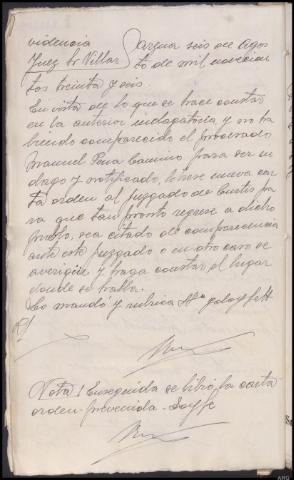 videncia
Juez Sr Villar
seis de Agos
to de mil novecien
tos treinta y seis.
En vista de lo que se hace constar
en la anterior indagatoria y no ha
biendo comparecido el procesado
Manuel Pena Camino, para ser in
dago y notificado, librese nueva car
ta orden al juzgado de Curtis pa
ra que tan pronto regrese a dicho
punto, sea citado de comparecencia
ante este juzgado o en otro caso se
averigüe y haga constar el lugar
donde se halla.
Lo mandó y rubrica Sª doy fe
R/
Nota/ Enseguida se libro la carta
orden prevenida. Doy fe